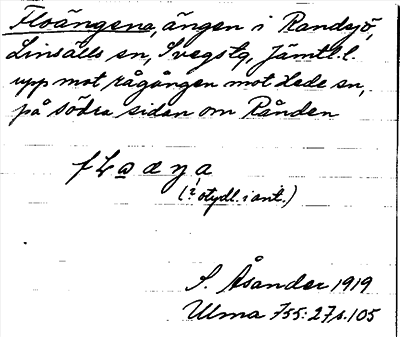 Floängena, ängen i Randsjö,
Linsälls sn, Svegstg, Jämtl. l.
upp mot rågången mot Hede sn,
på södra sidan om Rånden
(? otydl. i ant.)
S. Åsander 1919
Ulma 755:27 s. 105